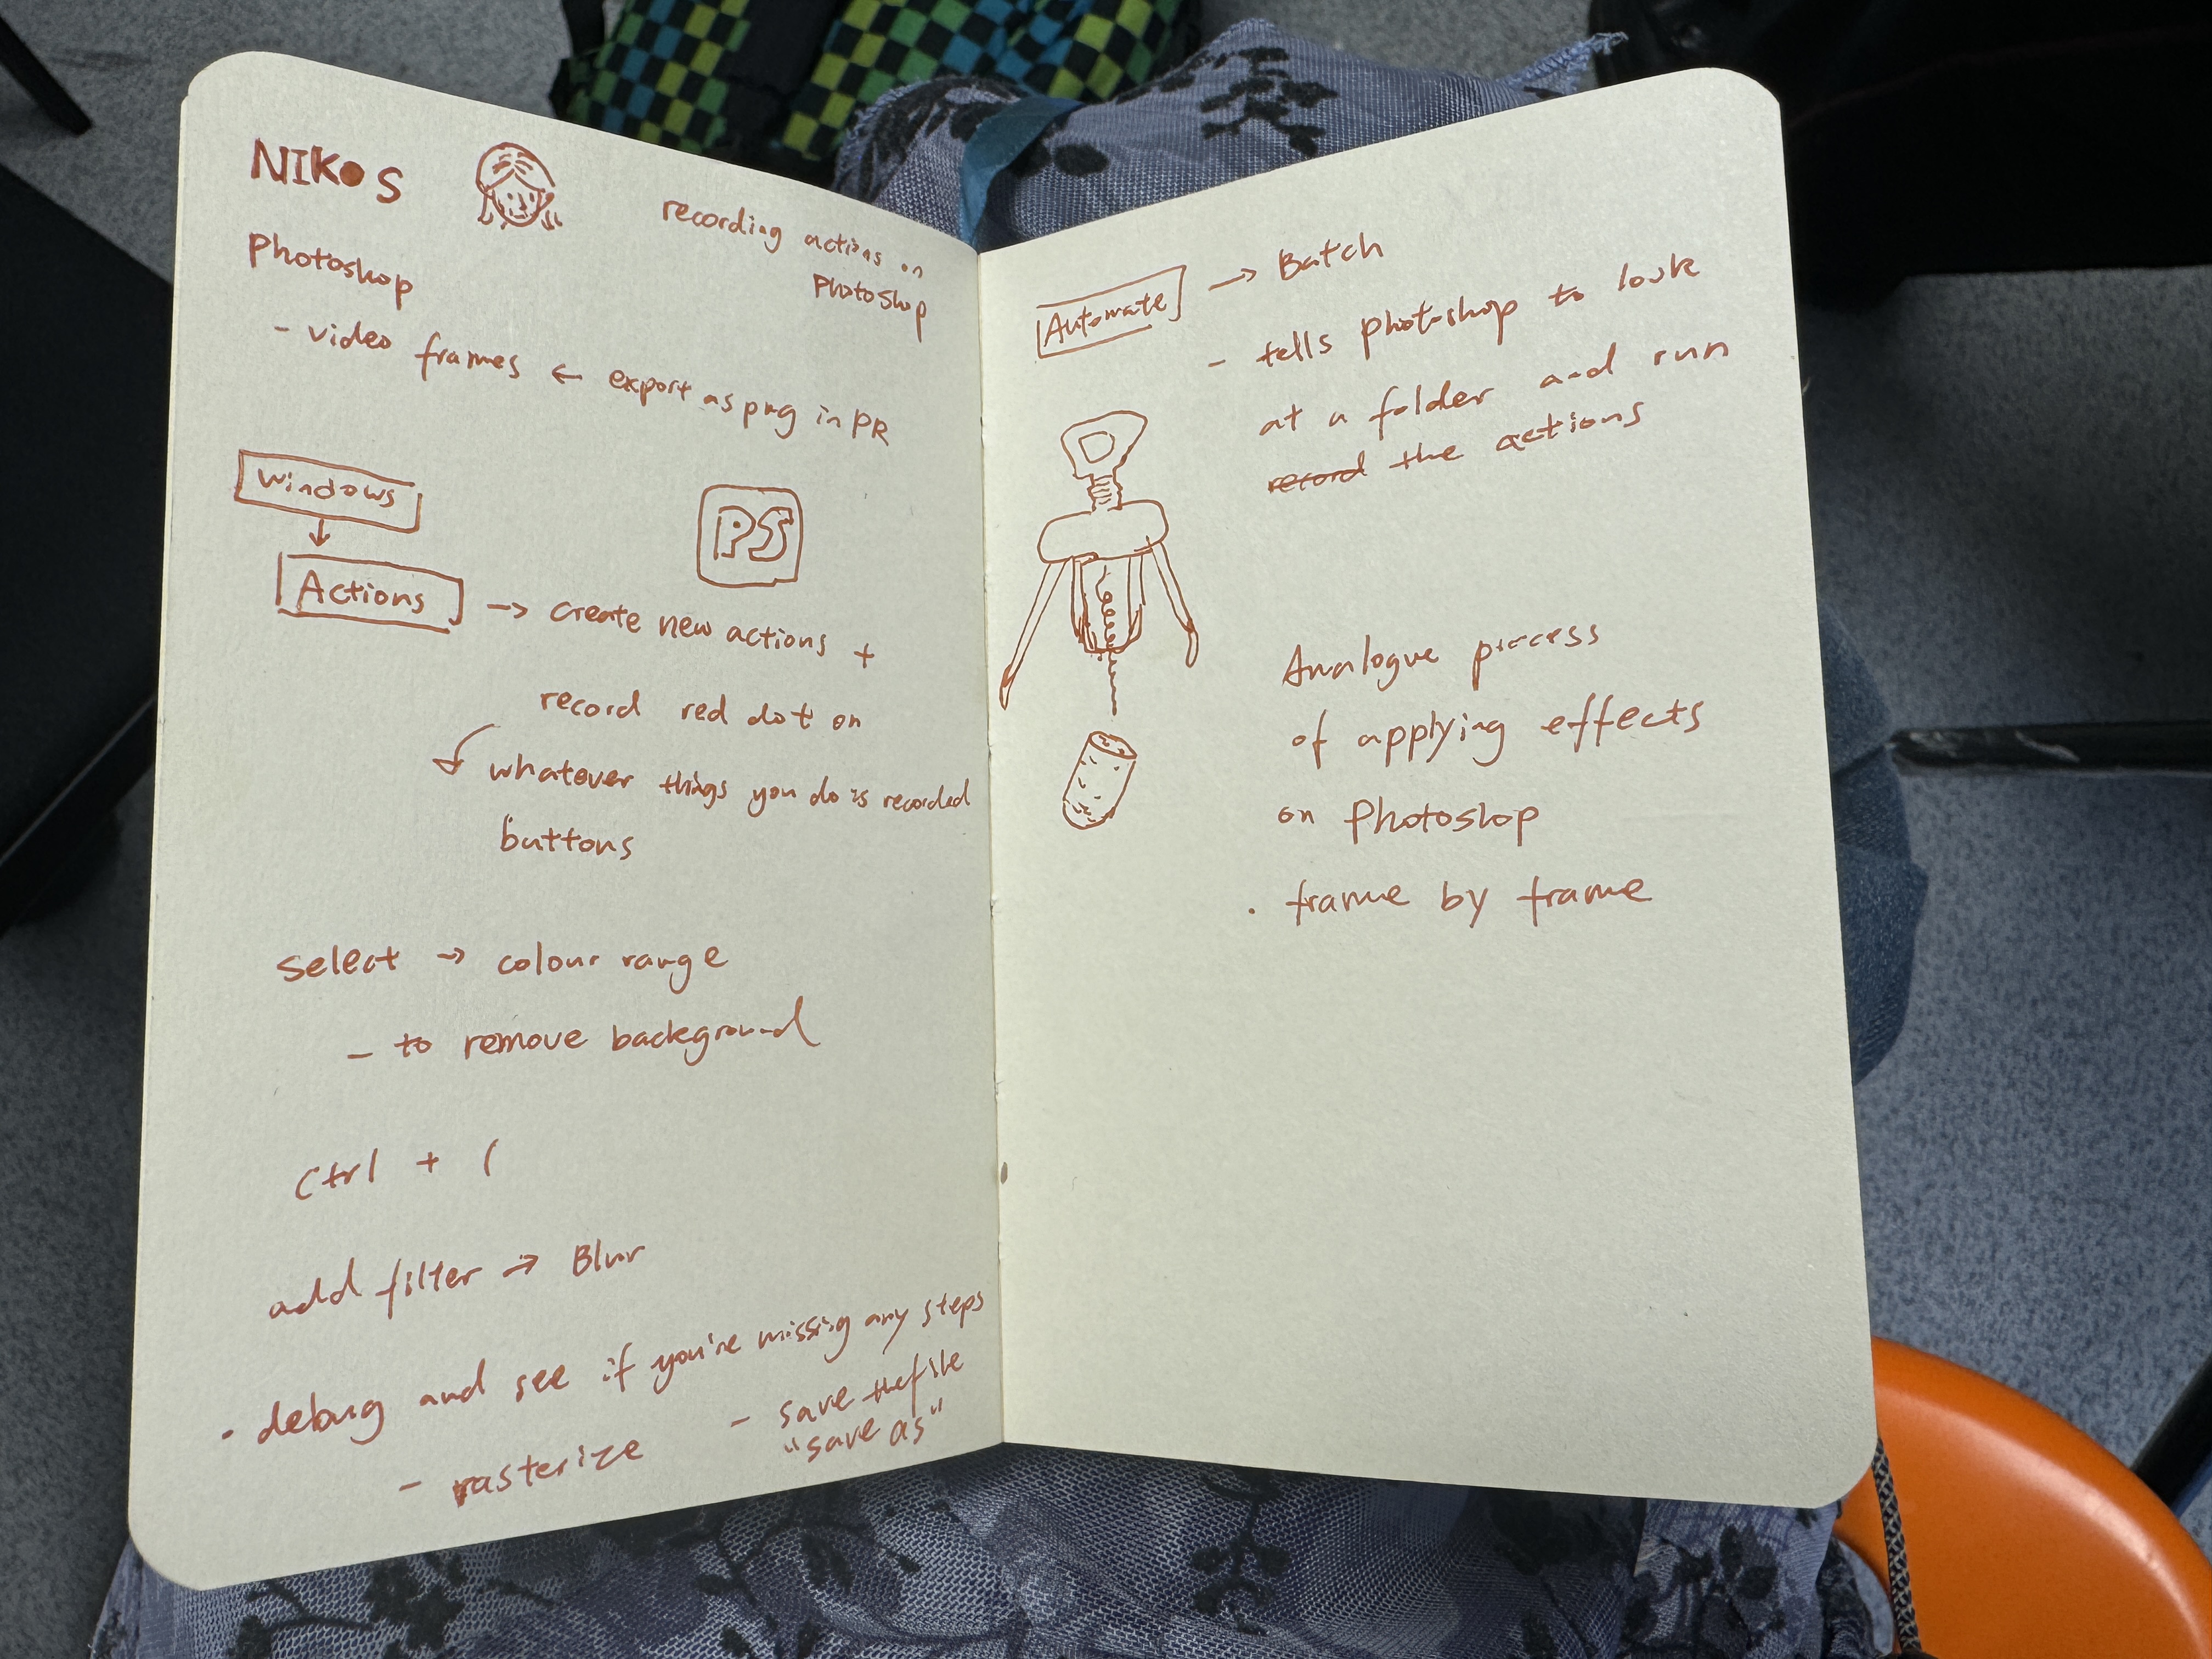 NIKOS
recording actions on
Photoshop
Photoshop
- video frames ← export as png in PR
Windows
↓
Actions → create new actions +
PS
record red dot on
whatever things you do is recorded
buttons
select → colour range
- to remove background
Ctrl + (
add filter → Blur
• debug and see if you're missing any steps
- rasterize
- save the file
"save as"
Automate → Batch
- tells photoshop to look
at a folder and run
record the actions
Analogue process
of applying effects
on Photoshop
• frame by frame